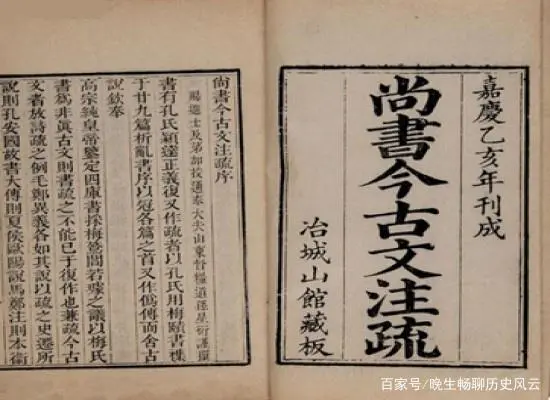 嘉慶乙亥年刊成
尚書今古文注疏
冶城山館藏板
尚書今古文注疏序
賜進士及第部授通奉大夫山東督糧道孫星衍謹撰
書有孔氏穎達正義復又作疏者以孔氏用梅賾書襍
于廿九篇析亂書序以冠各篇之首又作僞傳而舍古
說欽奉
高宗純皇帝鑒定四庫書採梅鷟閻若璩之議以梅氏
書爲非眞古文則書疏之不能已于復作也兼疏今古
文者放詩疏之例毛鄭異義各如其說以疏之史遷所
說則孔安國故書大傳則夏侯歐陽說馬鄭注則本衞
百家号/晚生畅聊历史风云